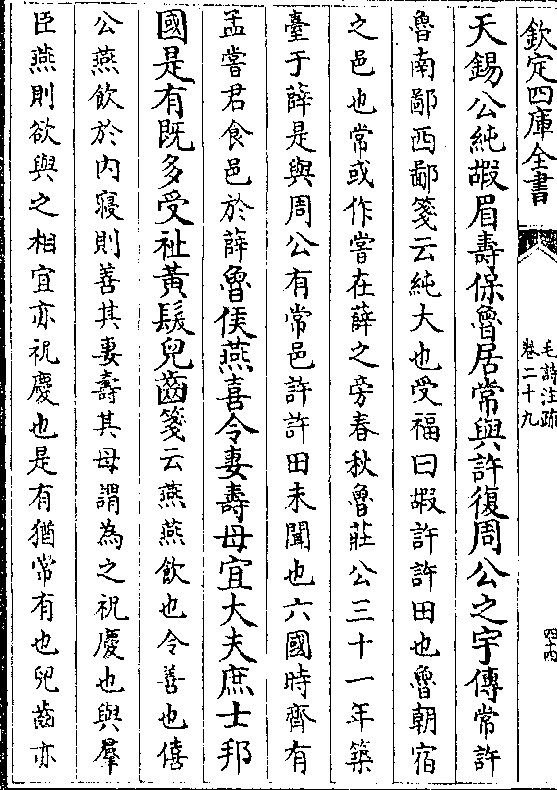 欽定四庫全書
毛詩注疏
卷二十九
四十四
天錫公純嘏眉壽保魯居常與許復周公之宇傳常許
魯南鄙西鄙箋云純大也受福曰嘏許許田也魯朝宿
之邑也常或作嘗在薛之旁春秋魯莊公三十一年築
臺于薛是與周公有常邑許許田未聞也六國時齊有
孟嘗君食邑於薛魯侯燕喜令妻壽母宜大夫庶士邦
國是有既多受祉黃髮兒齒箋云燕燕飲也令善也僖
公燕飲於內寢則善其妻壽其母謂為之祝慶也與羣
臣燕則欲與之相宜亦祝慶也是有猶常有也兒齒亦